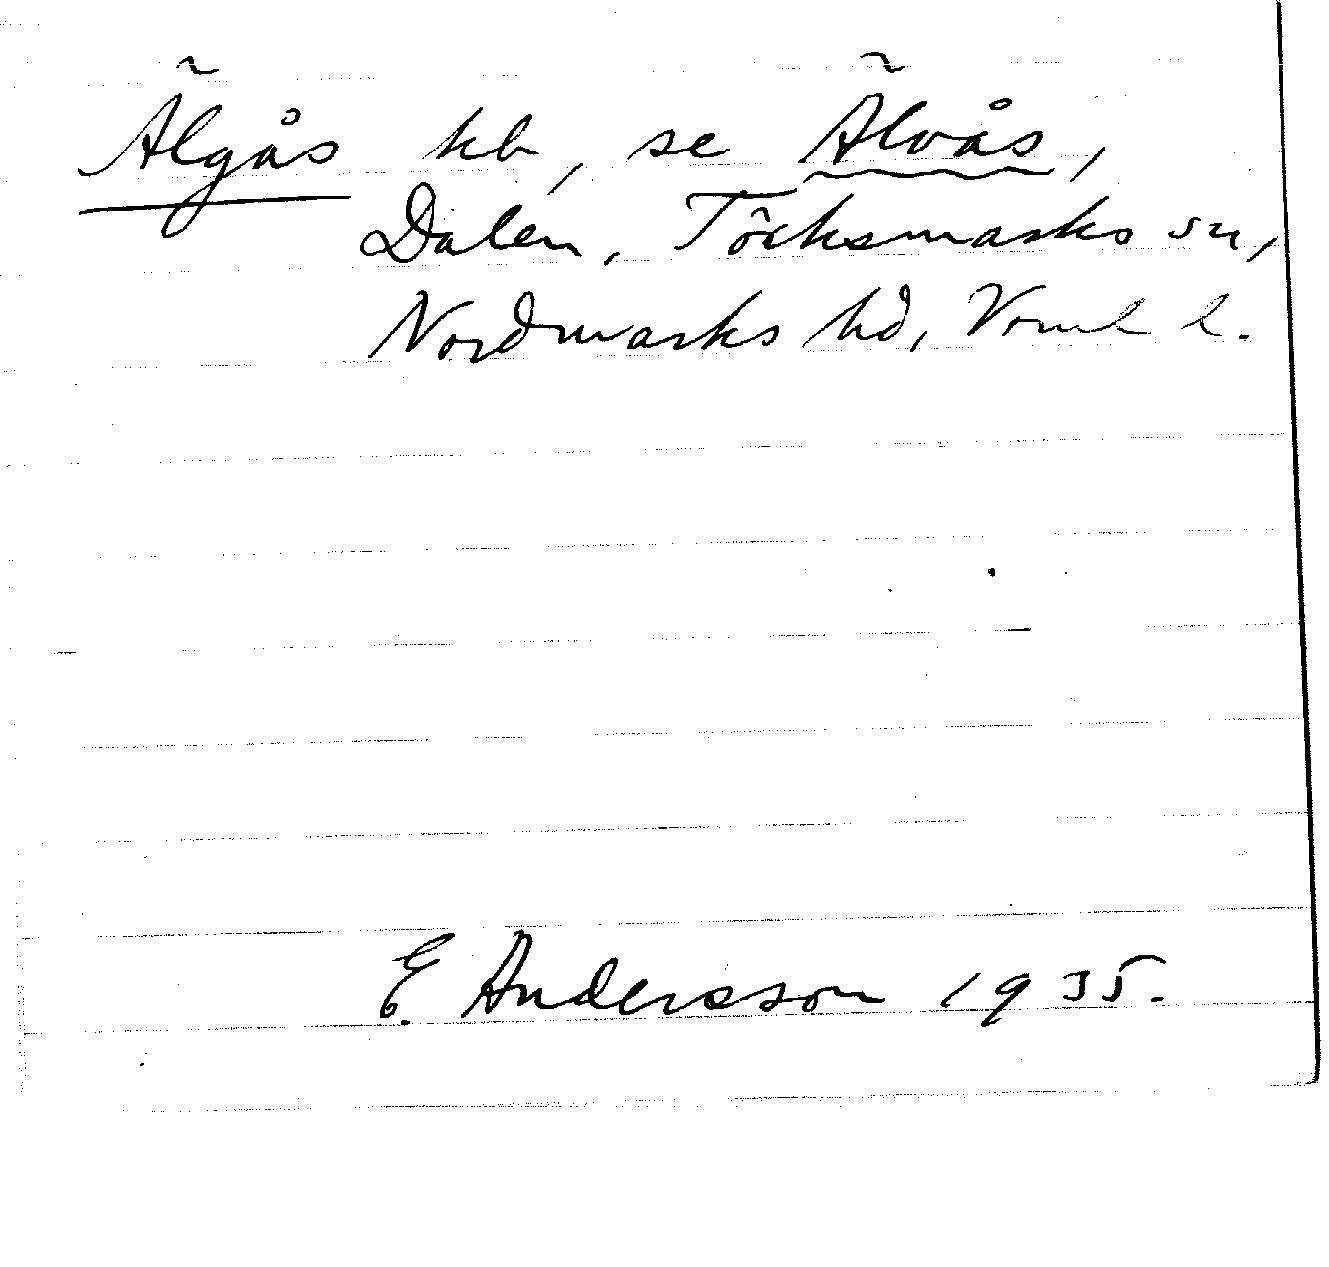 Älgås kb, se Älvås,
Dalen, Töcksmarks sn,
Nordmarks hd, Vrml l.
E. Andersson 1935.